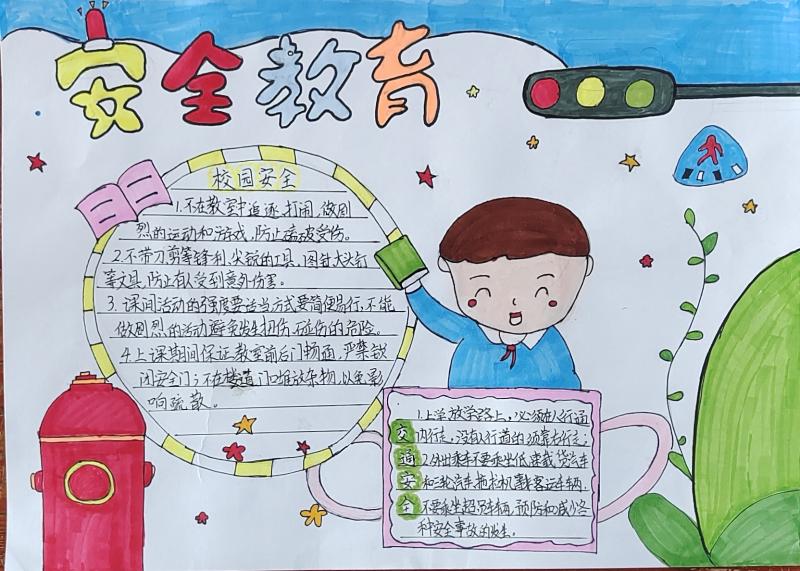 安全教育
校园安全
1.不在教室中追逐、打闹,做剧
烈的运动和游戏,防止磕碰受伤。
2.不带刀剪等锋利、尖锐的工具,图钉、大头针
等文具,防止有人受到意外伤害。
3.课间活动的强度要适当方式要简便易行,不能
做剧烈的活动避免发生扭伤、碰伤的危险。
4.上课期间保证教室前后门畅通,严禁锁
闭安全门;不在楼道门口堆放杂物,以免影
响疏散。
交通安全
1.上学放学路上,必须在人行道
内行走,没有人行道的须靠右行走;
2.外出乘车不要乘坐低速载货汽车
和三轮汽车拖拉机等非客运车辆,
不要乘坐超员车辆,预防和减少各
种安全事故的发生。